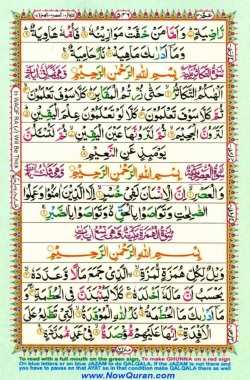 رَّاضِيَةٍ ۝ وَاَمَّا مَنْ خَفَّتْ مَوَازِيْنُهٗ ۝ فَاُمُّهٗ هَاوِيَةٌ ۝
وَمَاۤ اَدْرٰىكَ مَاهِيَهْ ۝ نَارٌ حَامِيَةٌ ۝
بِسْمِ اللهِ الرَّحْمٰنِ الرَّحِيْمِ
اَلْهٰىكُمُ التَّكَاثُرُ ۝ حَتّٰى زُرْتُمُ الْمَقَابِرَ ۝ كَلَّا سَوْفَ تَعْلَمُوْنَ ۝
ثُمَّ كَلَّا سَوْفَ تَعْلَمُوْنَ ۝ كَلَّا لَوْ تَعْلَمُوْنَ عِلْمَ الْيَقِيْنِ ۝
لَتَرَوُنَّ الْجَحِيْمَ ۝ ثُمَّ لَتَرَوُنَّهَا عَيْنَ الْيَقِيْنِ ۝ ثُمَّ لَتُسْـَٔلُنَّ
يَوْمَئِذٍ عَنِ النَّعِيْمِ ۝
بِسْمِ اللهِ الرَّحْمٰنِ الرَّحِيْمِ
وَالْعَصْرِ ۝ اِنَّ الْاِنْسَانَ لَفِيْ خُسْرٍ ۝ اِلَّا الَّذِيْنَ اٰمَنُوْا وَعَمِلُوا
الصّٰلِحٰتِ وَتَوَاصَوْا بِالْحَقِّ ۝ وَتَوَاصَوْا بِالصَّبْرِ ۝
بِسْمِ اللهِ الرَّحْمٰنِ الرَّحِيْمِ
وَيْلٌ لِّكُلِّ هُمَزَةٍ لُّمَزَةِ ۝ الَّذِيْ جَمَعَ مَالًا وَّعَدَّدَهٗ ۝
يَحْسَبُ اَنَّ مَالَهٗۤ اَخْلَدَهٗ ۝ كَلَّا لَيُنْۢبَذَنَّ فِي الْحُطَمَةِ ۝ وَمَاۤ
اَدْرٰىكَ مَا الْحُطَمَةُ ۝ نَارُ اللهِ الْمُوْقَدَةُ ۝ الَّتِيْ تَطَّلِعُ عَلَى
الْاَفْـِٕدَةِ ۝ اِنَّهَا عَلَيْهِمْ مُّؤْصَدَةٌ ۝ فِيْ عَمَدٍ مُّمَدَّدَةٍ ۝
To read with a full mouth on the green sign, To make GHUNNA on a red sign
On blue letters or on blue JAZAM to do QALQALA, if the JAZAM is not there and
you have to pause on that AYAT so in that condition make QALQALA there as well
www.NowQuran.com